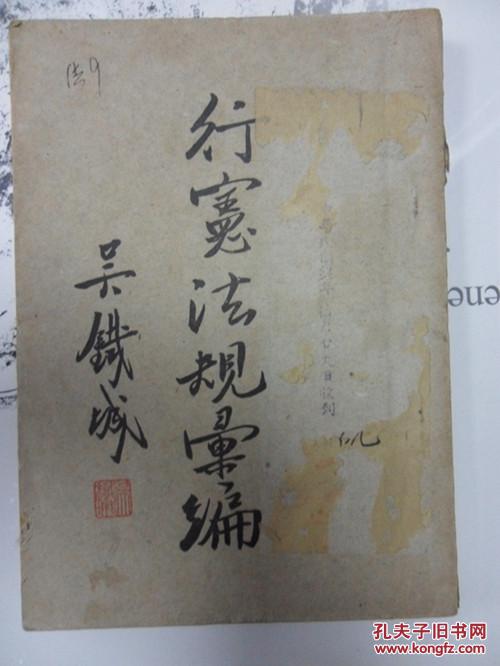 法9
行憲法規彙編
吳鐵城
ene
孔夫子旧书网
www.kongfz.com